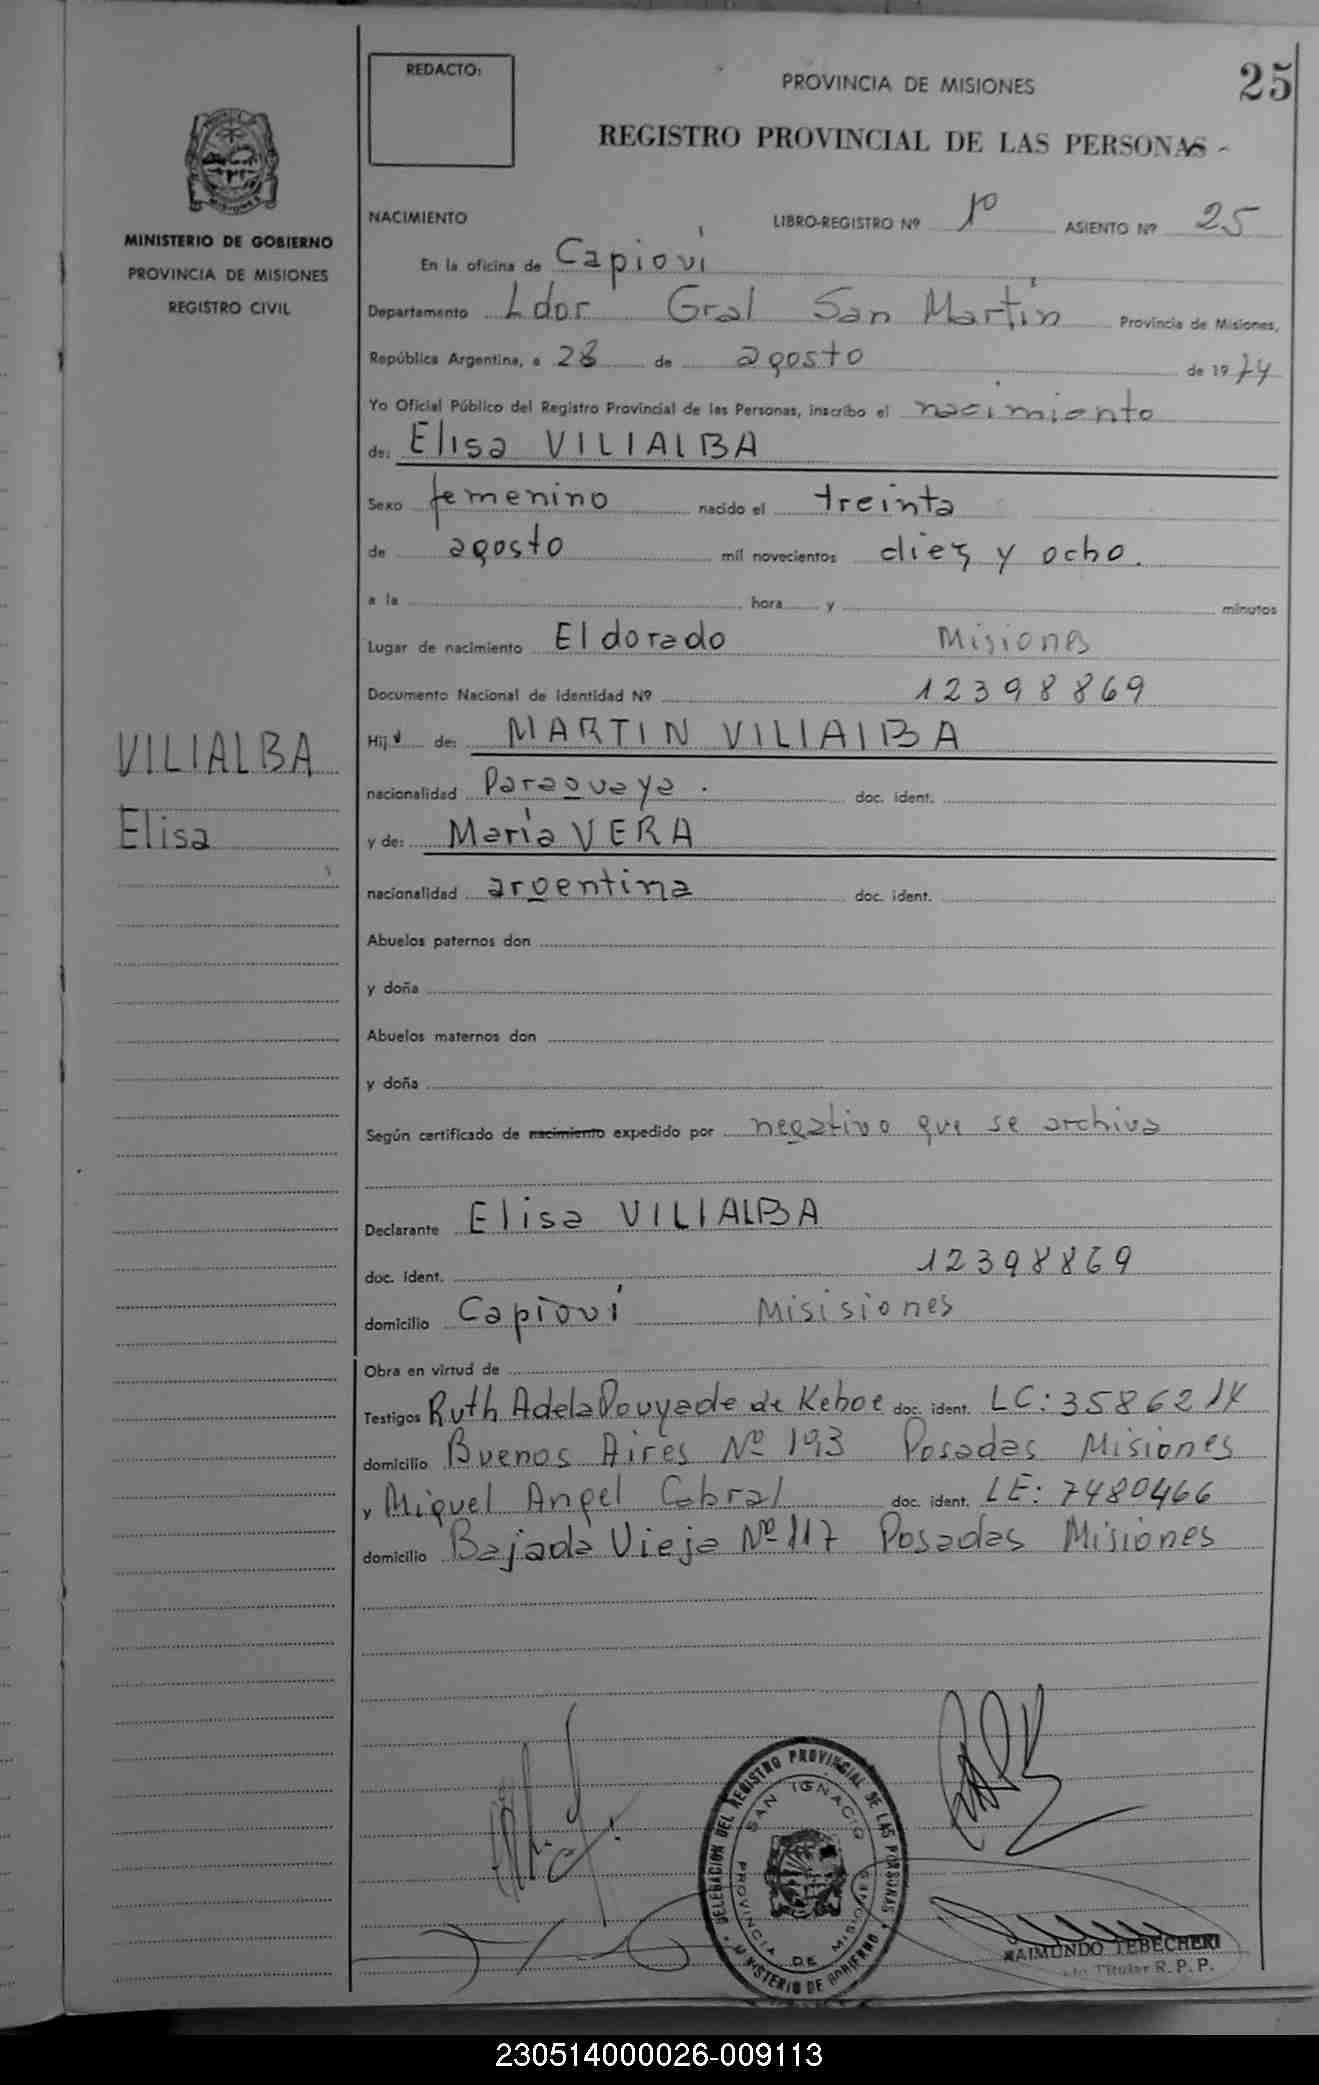 REDACTO:
PROVINCIA DE MISIONES
25
REGISTRO PROVINCIAL DE LAS PERSONAS
MINISTERIO DE GOBIERNO
PROVINCIA DE MISIONES
REGISTRO CIVIL
NACIMIENTO LIBRO-REGISTRO Nº 1º ASIENTO Nº 25
En la oficina de Capioví
Departamento Ldor Gral San Martín Provincia de Misiones,
República Argentina, a 28 de agosto de 1974
Yo Oficial Público del Registro Provincial de las Personas, inscribo el nacimiento
de: Elisa VILIALBA
Sexo femenino nacido el treinta
de agosto mil novecientos diez y ocho.
a la hora y minutos
Lugar de nacimiento Eldorado Misiones
Documento Nacional de Identidad Nº 12398869
VILIALBA
Elisa
Hij de: MARTIN VILIALBA
nacionalidad Paraguaya. doc. ident.
y de: María VERA
nacionalidad argentina doc. ident.
Abuelos paternos don
y doña
Abuelos maternos don
y doña
Según certificado de nacimiento expedido por negativo que se archiva
Declarante Elisa VILIALBA
doc. ident. 12398869
domicilio Capioví Misisiones
Obra en virtud de
Testigos Ruth Adela Pouyade de Keboe doc. ident. LC: 3586214
domicilio Buenos Aires Nº 193 Posadas Misiones
y Miguel Angel Cabral doc. ident. LE: 7480466
domicilio Bajada Vieja Nº 117 Posadas Misiones
DELEGACION DEL REGISTRO PROVINCIAL DE LAS PERSONAS
SAN IGNACIO
PROVINCIA DE MISIONES
MINISTERIO DE GOBIERNO
RAIMUNDO TEBECHERI
Titular R. P. P.
230514000026-009113